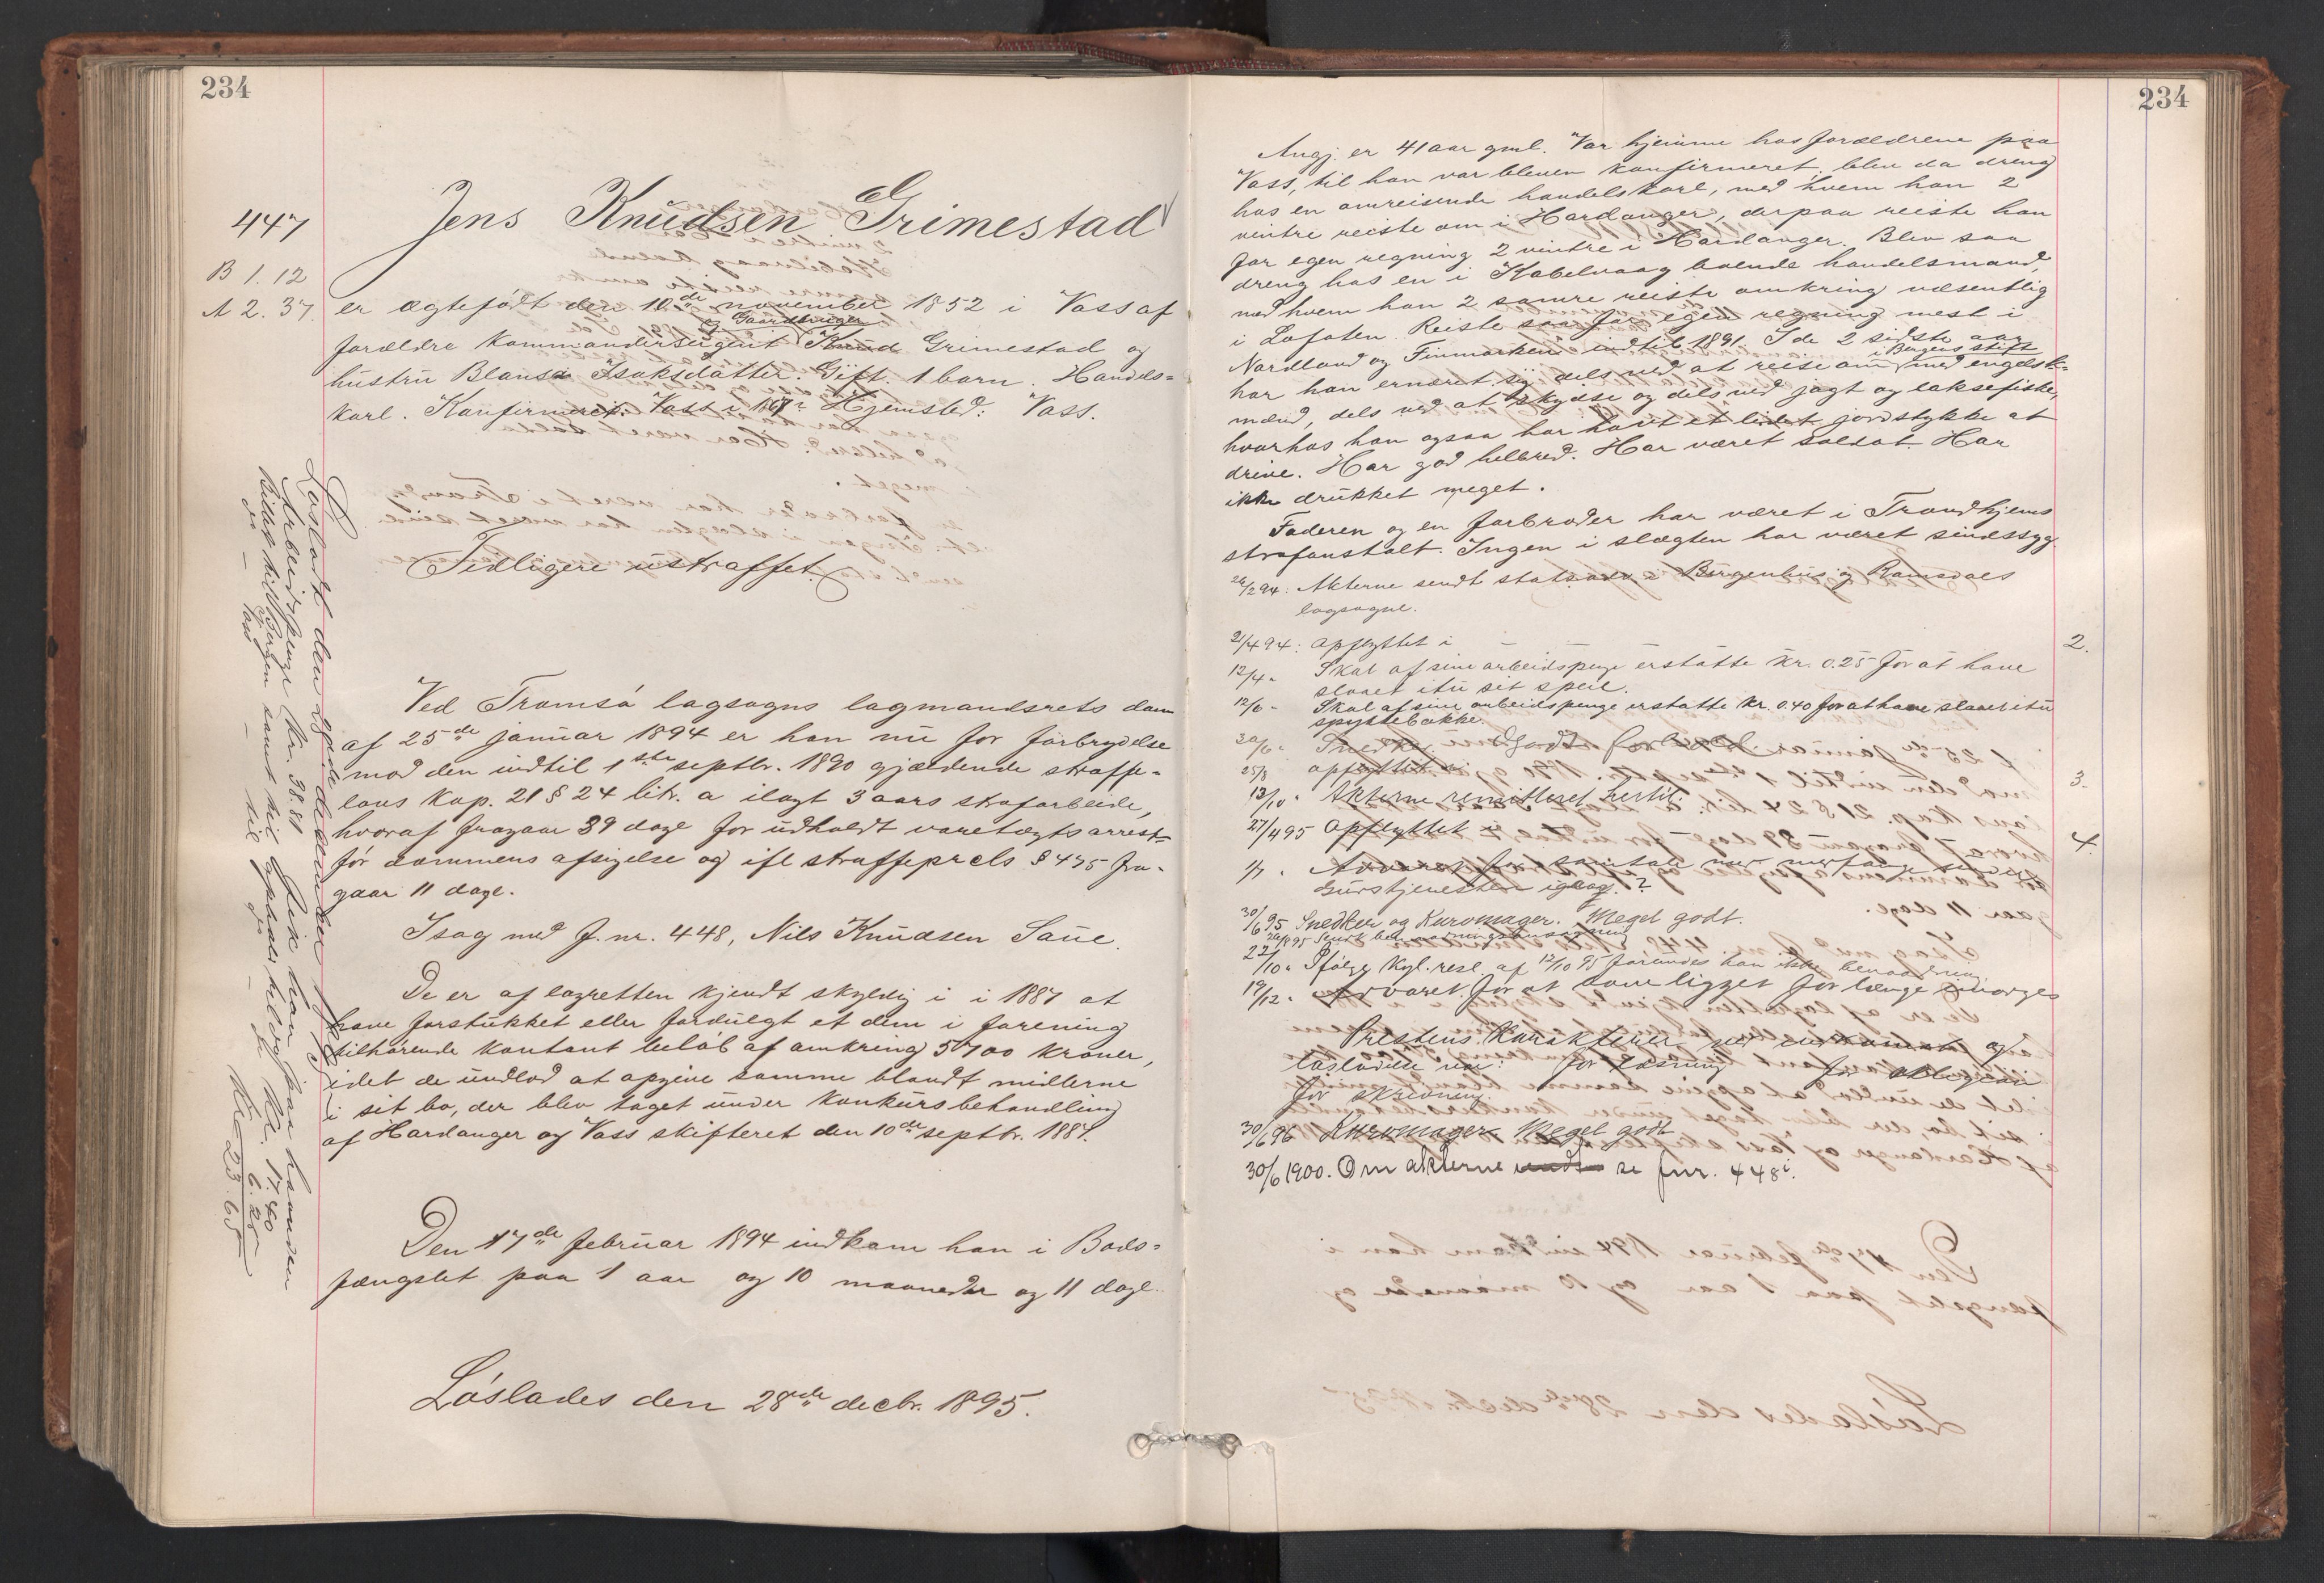 234
447
Jens Knudsen Grimestad
B 1.12
A 2.37.
er ægtefødt den 10de november 1852 i Vass af
og Gaardbruger
forældre kommandersergent Knud Grimestad og
hustru Blansa Isaksdatter. Gift. 1 barn. Handels=
karl. Konfirmeret: Vass i 1867? Hjemsted: Vass.
Tidligere ustraffet.
Ved Tromsø lagsogns lagmandsrets dom
af 25de januar 1894 er han nu for forbrydelse
mod den indtil 1ste septbr. 1890 gjældende straffe-
lovs kap. 21 § 24 litr. a ilagt 3 aars strafarbeide,
hvoraf fragaar 39 dage for udholdt varetægtsarrest
før dommens afsigelse og ifl straffeprcls § 475 fra-
gaar 11 dage.
I sag med f. nr. 448, Nils Knudsen Saue.
De er af lagretten kjendt skyldig i i 1887 at
have forstukket eller fordulgt et dem i forening
tilhørende kontant beløb af omkring 5700 kroner,
idet de undlod at opgive samme blandt midlerne
i sit bo, der blev taget under konkursbehandling
af Hardanger og Vass skifteret den 10de septbr. 1887.
Den 17de februar 1894 indkom han i Bods-
fængslet paa 1 aar og 10 maaneder og 11 dage.
Løslades den 28de decbr. 1895.
Løsladt den 28de december 1895
Arbeidspenge Kr. 38.81 Fik han paa haanden
Billet til Bergen samt til ophold underveis Kr. 17.40
6.25
Kr. 23.65
234
Angj. er 41 aar gml. Var hjemme hos forældrene paa
Vass, til han var bleven konfirmeret, blev da dreng
hos en omreisende handelskarl, med hvem han 2
vintre reiste om i Hardanger, derpaa reiste han
for egen regning 2 vintre i Hardanger. Blev saa
dreng hos en i Kabelvaag boende handelsmand,
med hvem han 2 somre reiste omkring væsentlig
i Lofoten. Reiste saa for egen regning mest i
Nordland og Finmarken indtil 1891. I de 2 sidste aar
i Bergens stift
har han ernæret sig dels ved at reise om med engelsk-
mænd, dels ved at skydse og dels ved jagt og laksefiske,
hvorhos han ogsaa har havt et lidet jordstykke at
drive. Har god helbred. Har været soldat. Har
ikke drukket meget.
Faderen og en farbroder har været i Trondhjems
strafanstalt. Ingen i slægten har været sindssyg.
26/2 94: Akterne sendt statsadv. i Bergenhus og Romsdals
lagsogne.
21/4 94: Opflyttet i — — 2.
12/4 " Skal af sine arbeidspenge erstatte kr. 0.25 for at have
slaaet itu sit speil.
12/6 " Skal af sine arbeidspenge erstatte kr. 0.40 for at have slaaet itu
spyttebakke.
30/6 " Snedker. Godt forhold.
25/8 opflyttet i 3.
13/10 " Akterne remitteret hertil.
27/4 95 Opflyttet i 4.
1/7 " Advaret for samtale med medfange under
Gudstjenesten igaar?
30/6 95 Snedker og Kurvmager. Meget godt.
22/10 " Ifølge kgl. resl. af 12/10 95 forundes han ikke benaadning.
19/12 " Advaret for at have ligget for længe imorges
Prestens Karakterer ved indkomst og
løsladelse var: for Læsning for religion
for skrivning.
30/6 96 Kurvmager. Meget godt
30/6 1900. Om akterne se fnr. 448.